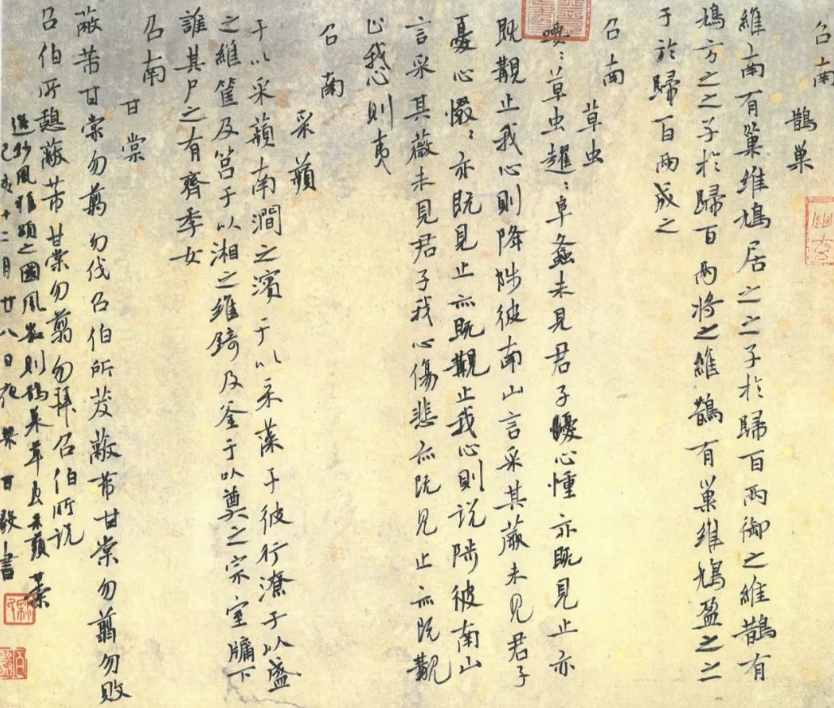 召南
鵲巢
維南有巢維鳩居之之子於歸百兩御之維鵲有
鳩方之之子於歸百兩将之維鵲有巢維鳩盈之之
子於歸百兩成之
召南
草虫
喓:草虫趯:阜螽未見君子憂心忡亦既見止亦
既覯止我心則降陟彼南山言采其蕨未見君子
憂心惙:亦既見止亦既覯止我心則说陟彼南山
言采其薇未見君子我心傷悲亦既見止亦既覯
止我心則夷
召南
采蘋
于以采蘋南澗之濱于以采藻于彼行潦于以盛
之維筐及筥于以湘之維錡及釜于以奠之宗室牖下
誰其尸之有齊季女
召南
甘棠
蔽芾甘棠勿翦勿伐召伯所茇蔽芾甘棠勿翦勿敗
召伯所憩蔽芾甘棠勿翦勿拜召伯所说
選抄風雅頌之國風
己亥十二月廿八日夜書